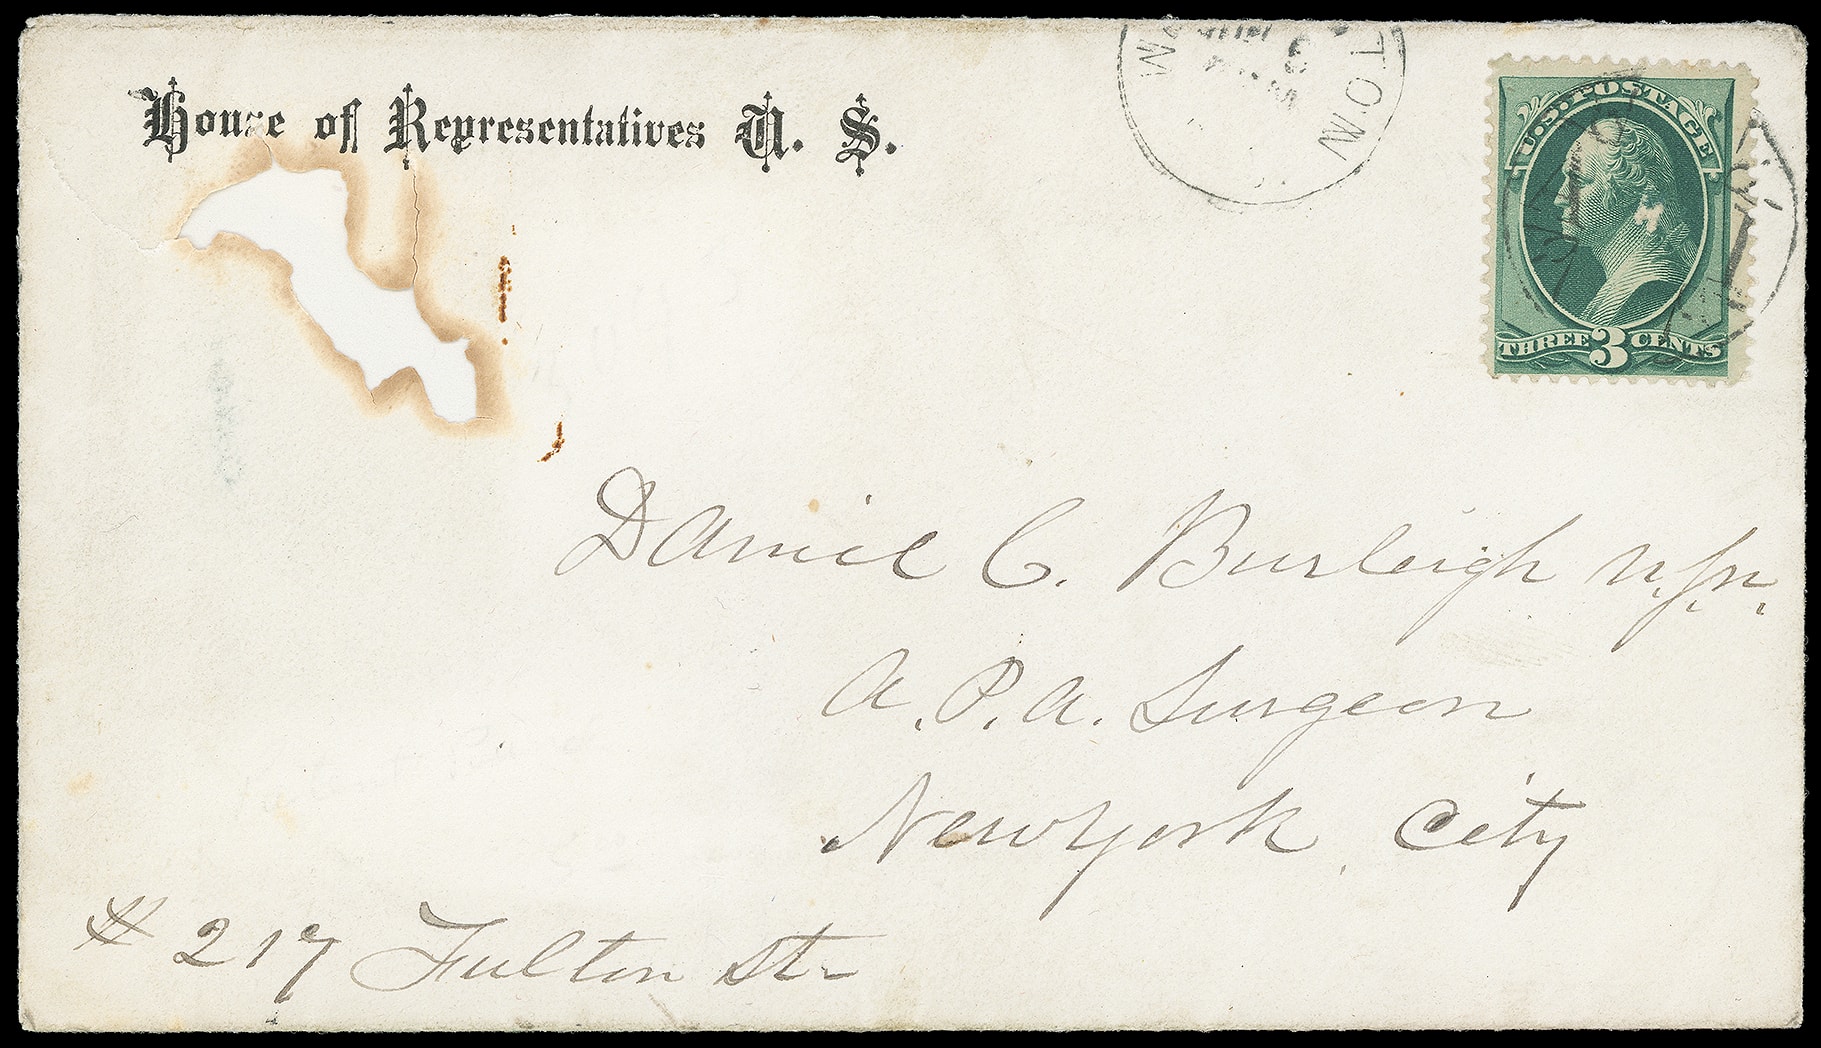 House of Representatives U. S.
U.S. POSTAGE
THREE 3 CENTS
Daniel C. Burleigh
A. P. A. Surgeon
New York City
# 217 Fulton St-